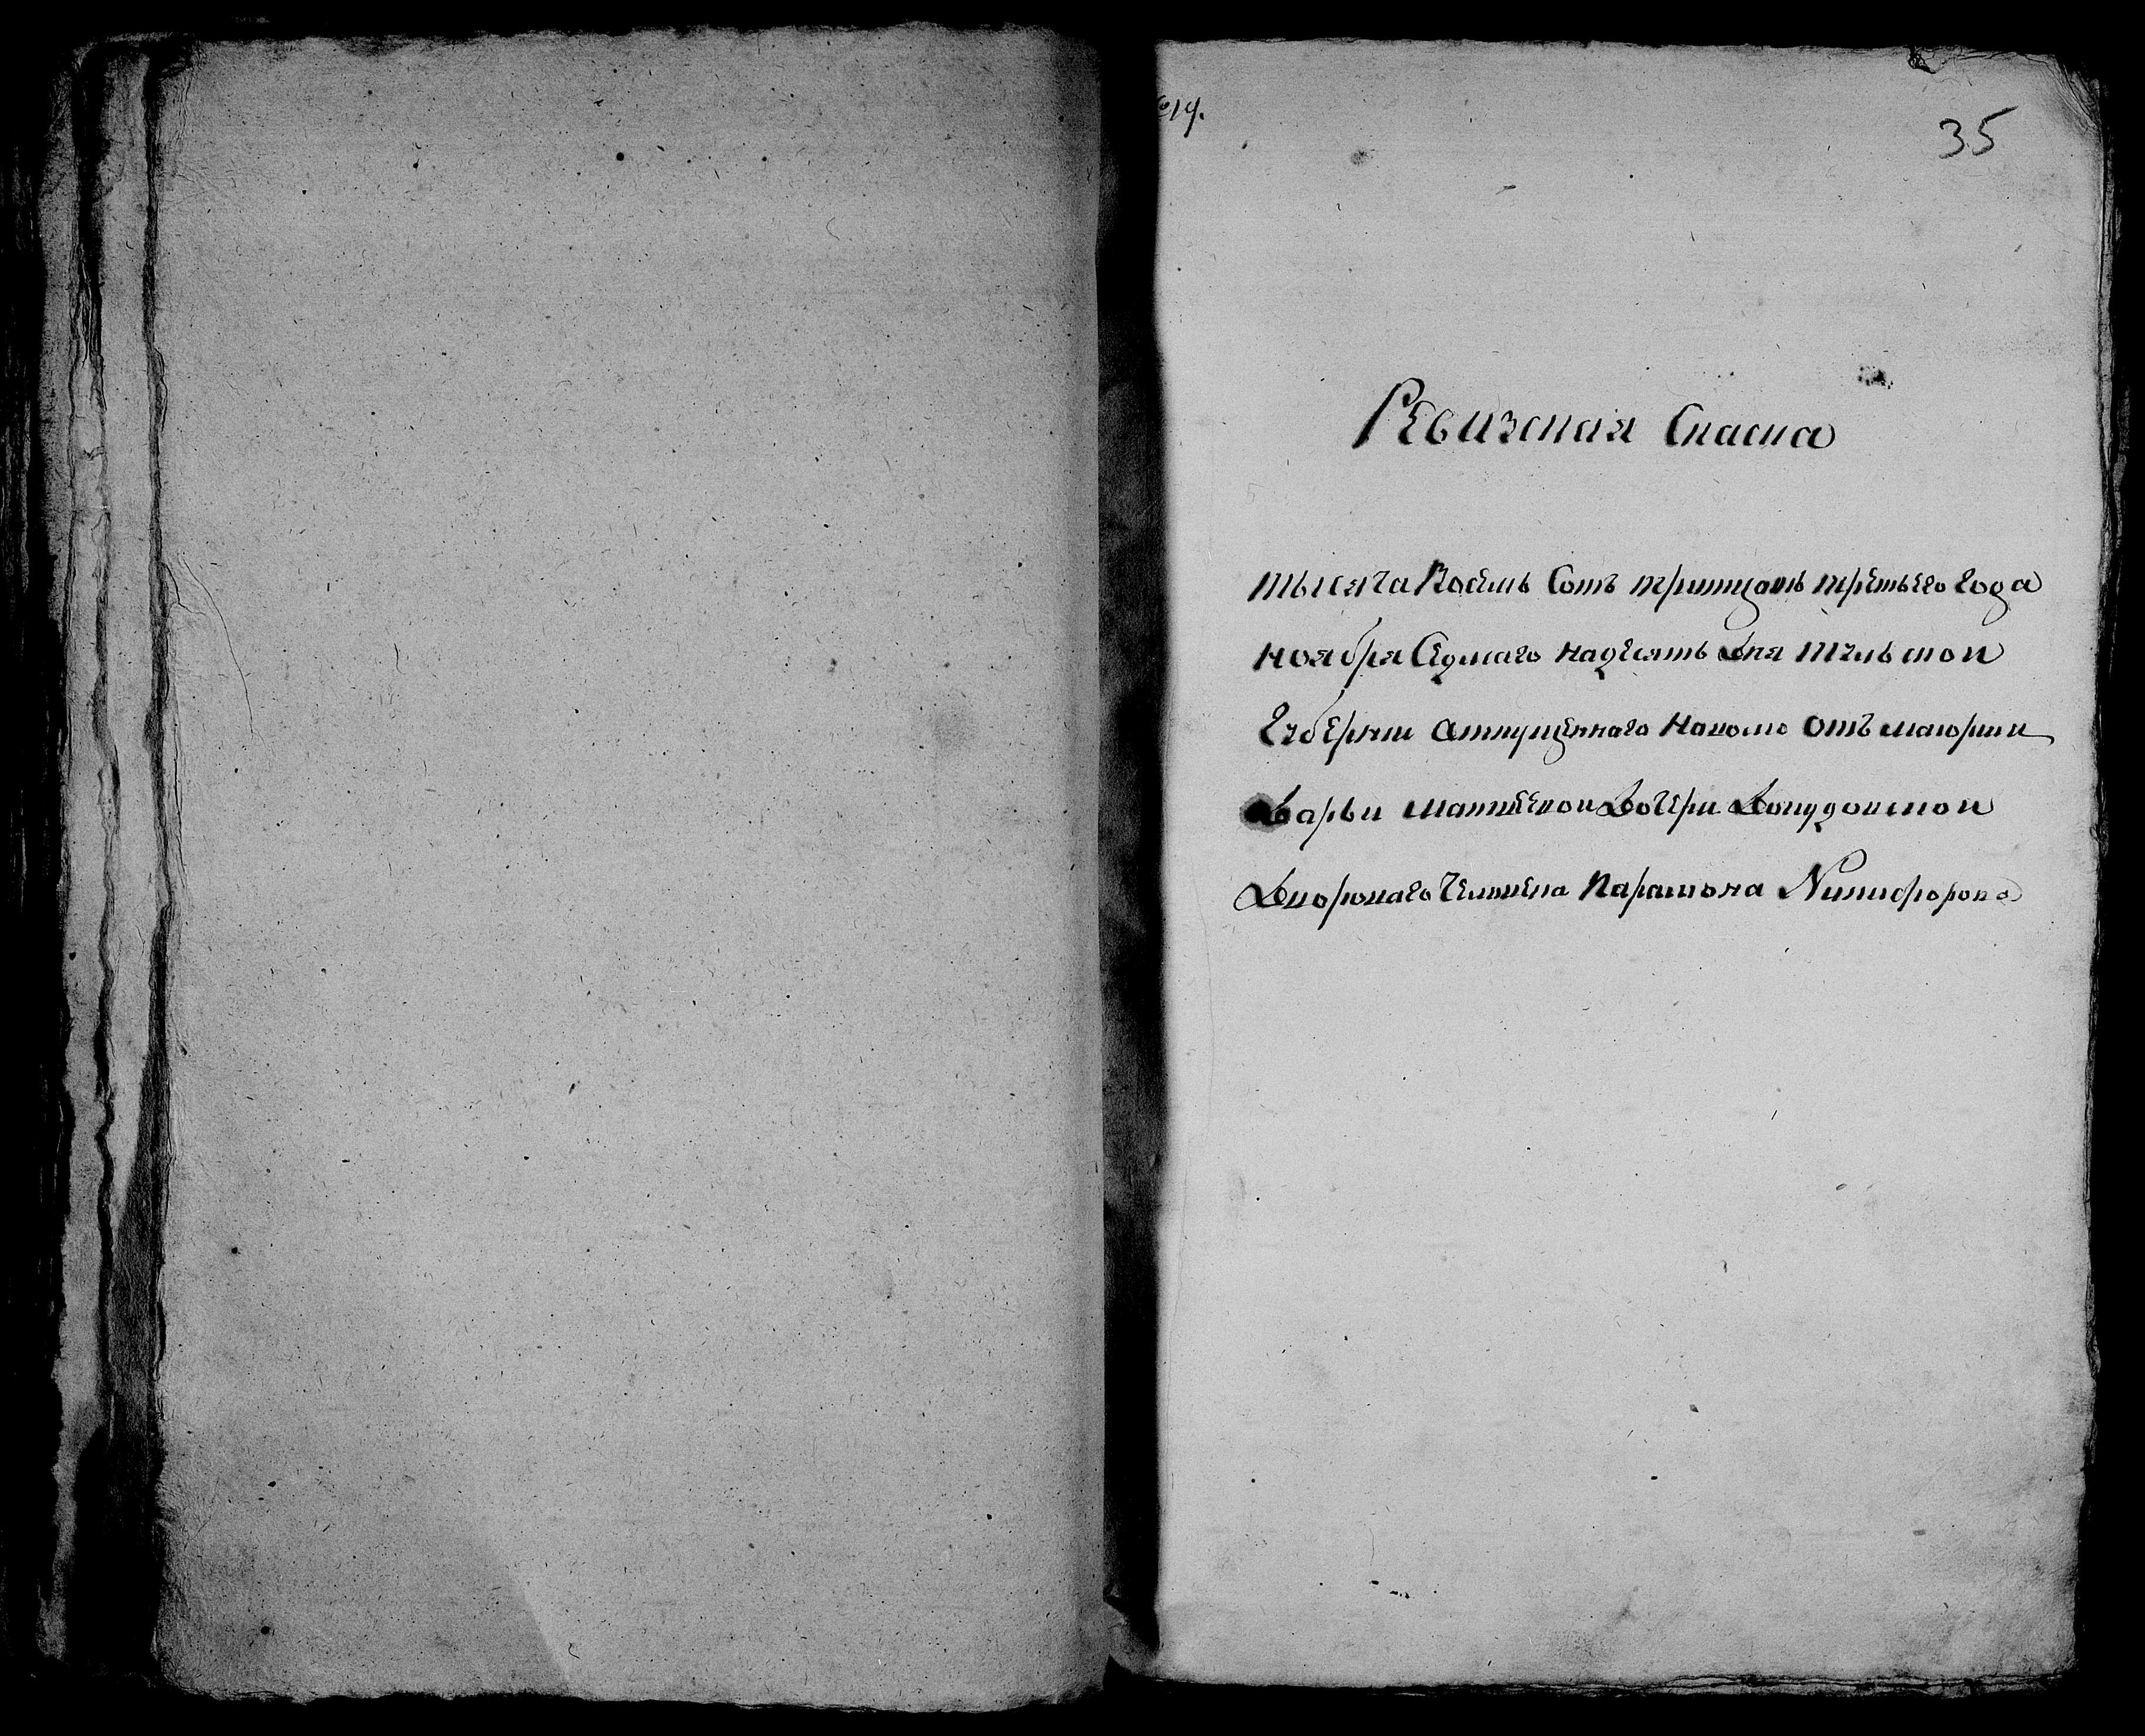 619.
35
Ревизская Сказка
тысяча Восемь Сотъ тритцать третьего года
ноября Седмаго надесять Дня тульской
Губернии атпущеннаго наволю отъ маиорши
Дарьи матвеевой Дочери
Дворового Человека Парамона Никифорова